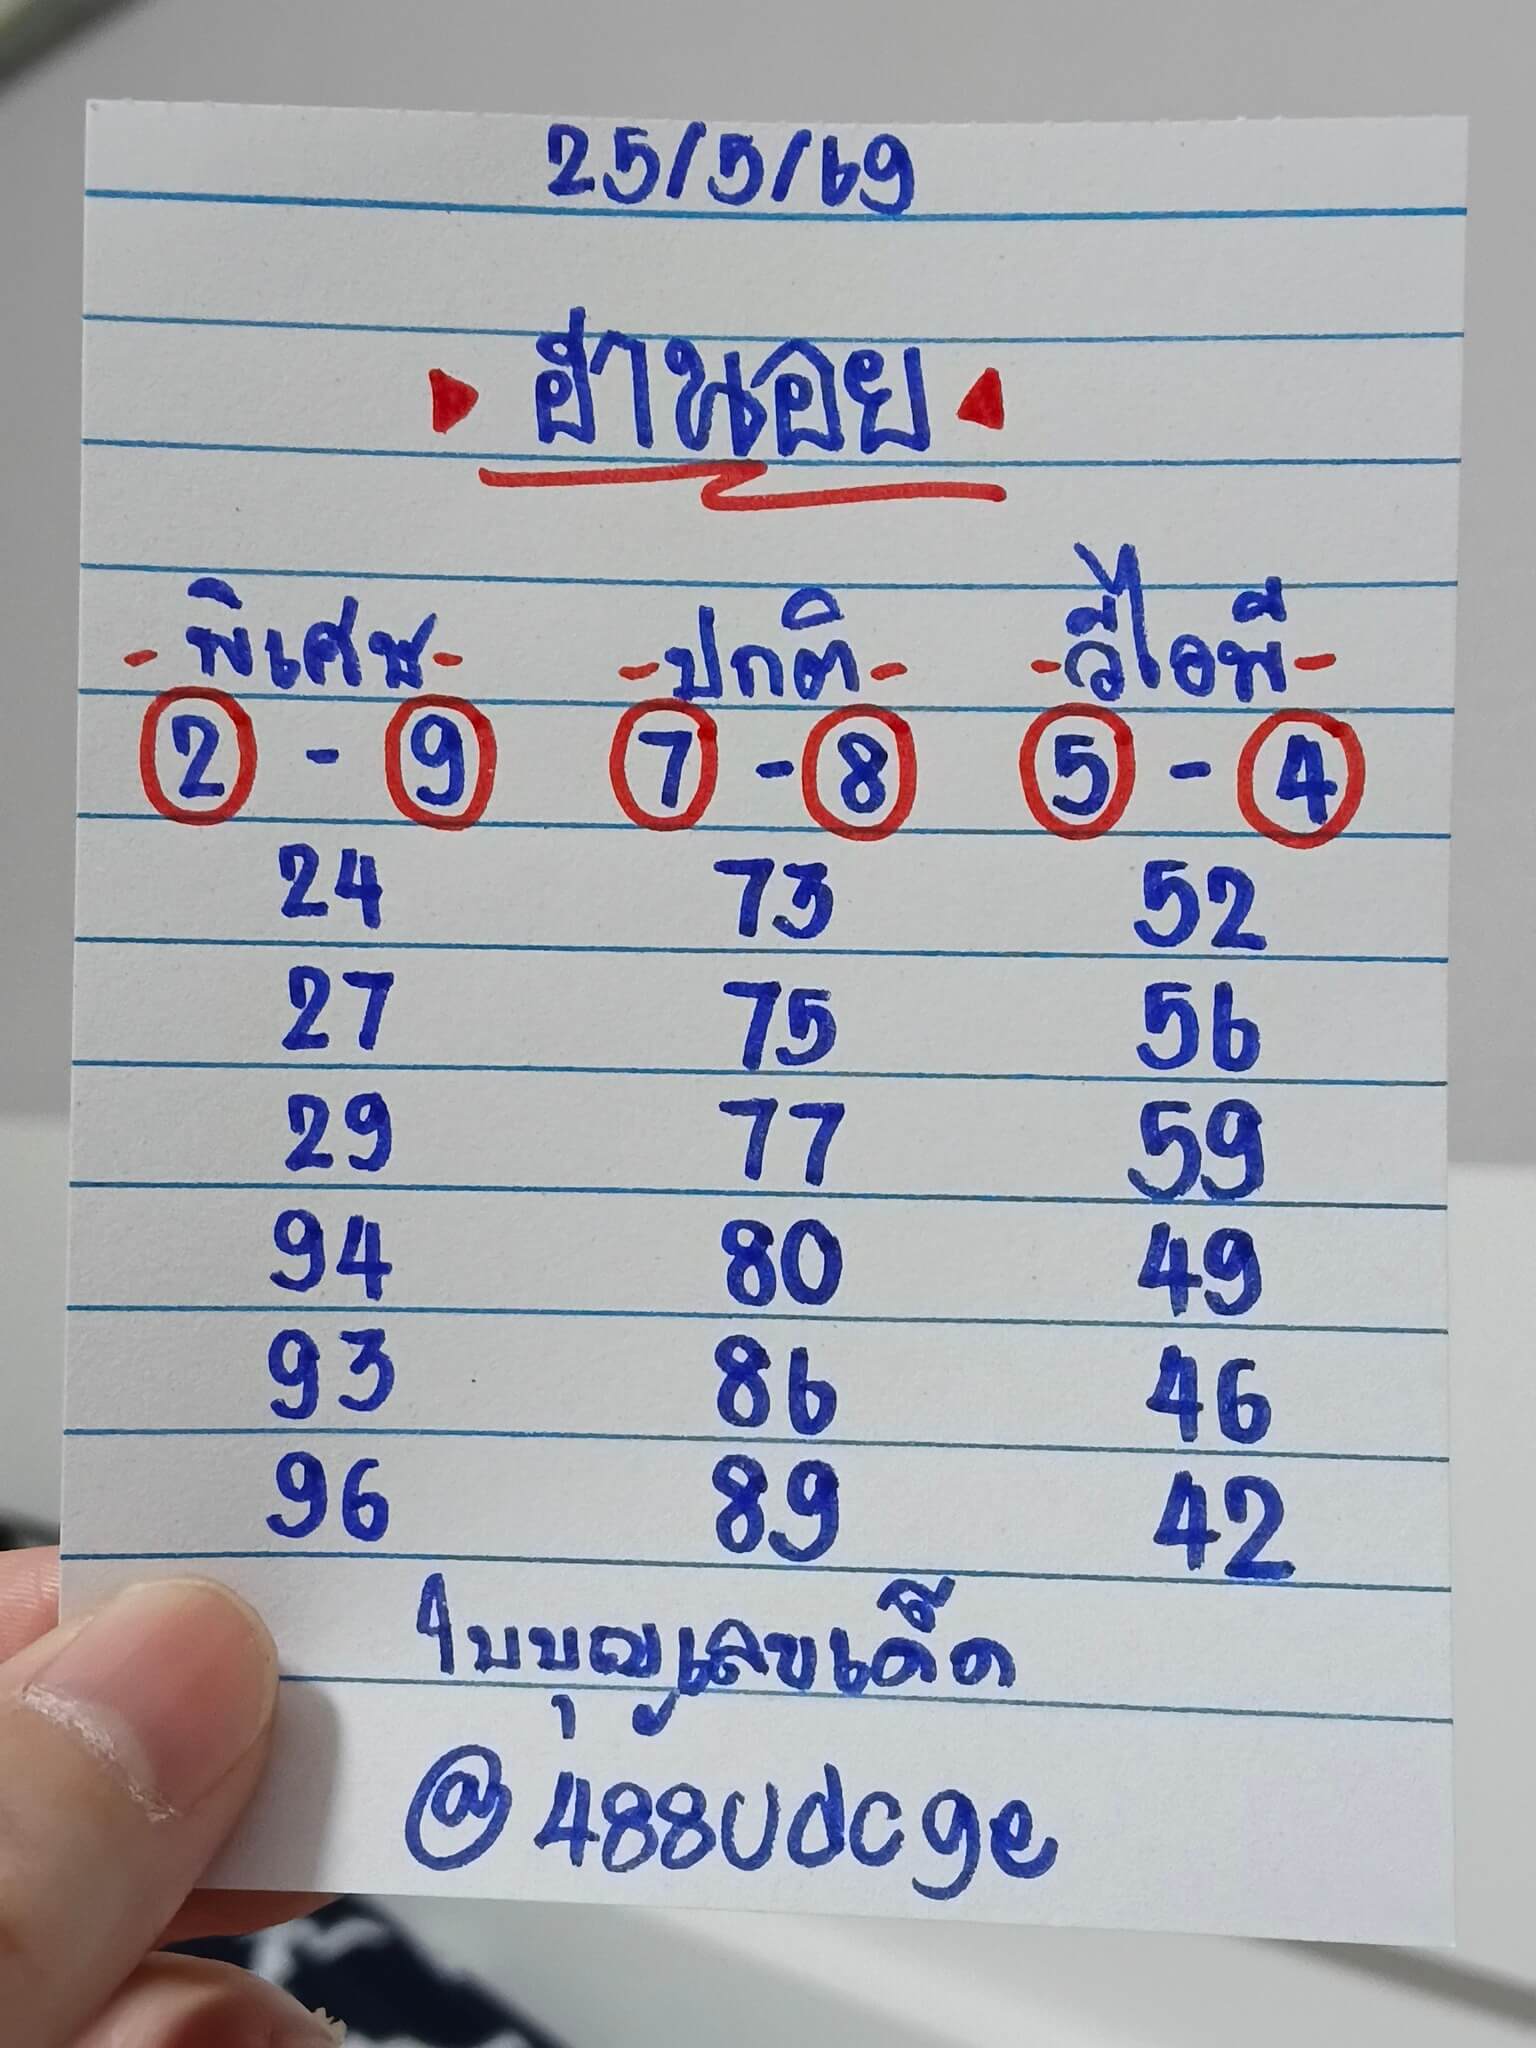 25/5/69
ฮานอย
-พิเศษ- -ปกติ- -วีไอพี-
2 - 9 7 - 8 5 - 4
24 73 52
27 75 56
29 77 59
94 80 49
93 86 46
96 89 42
ใบบุญเลขเด็ด
@488udcge